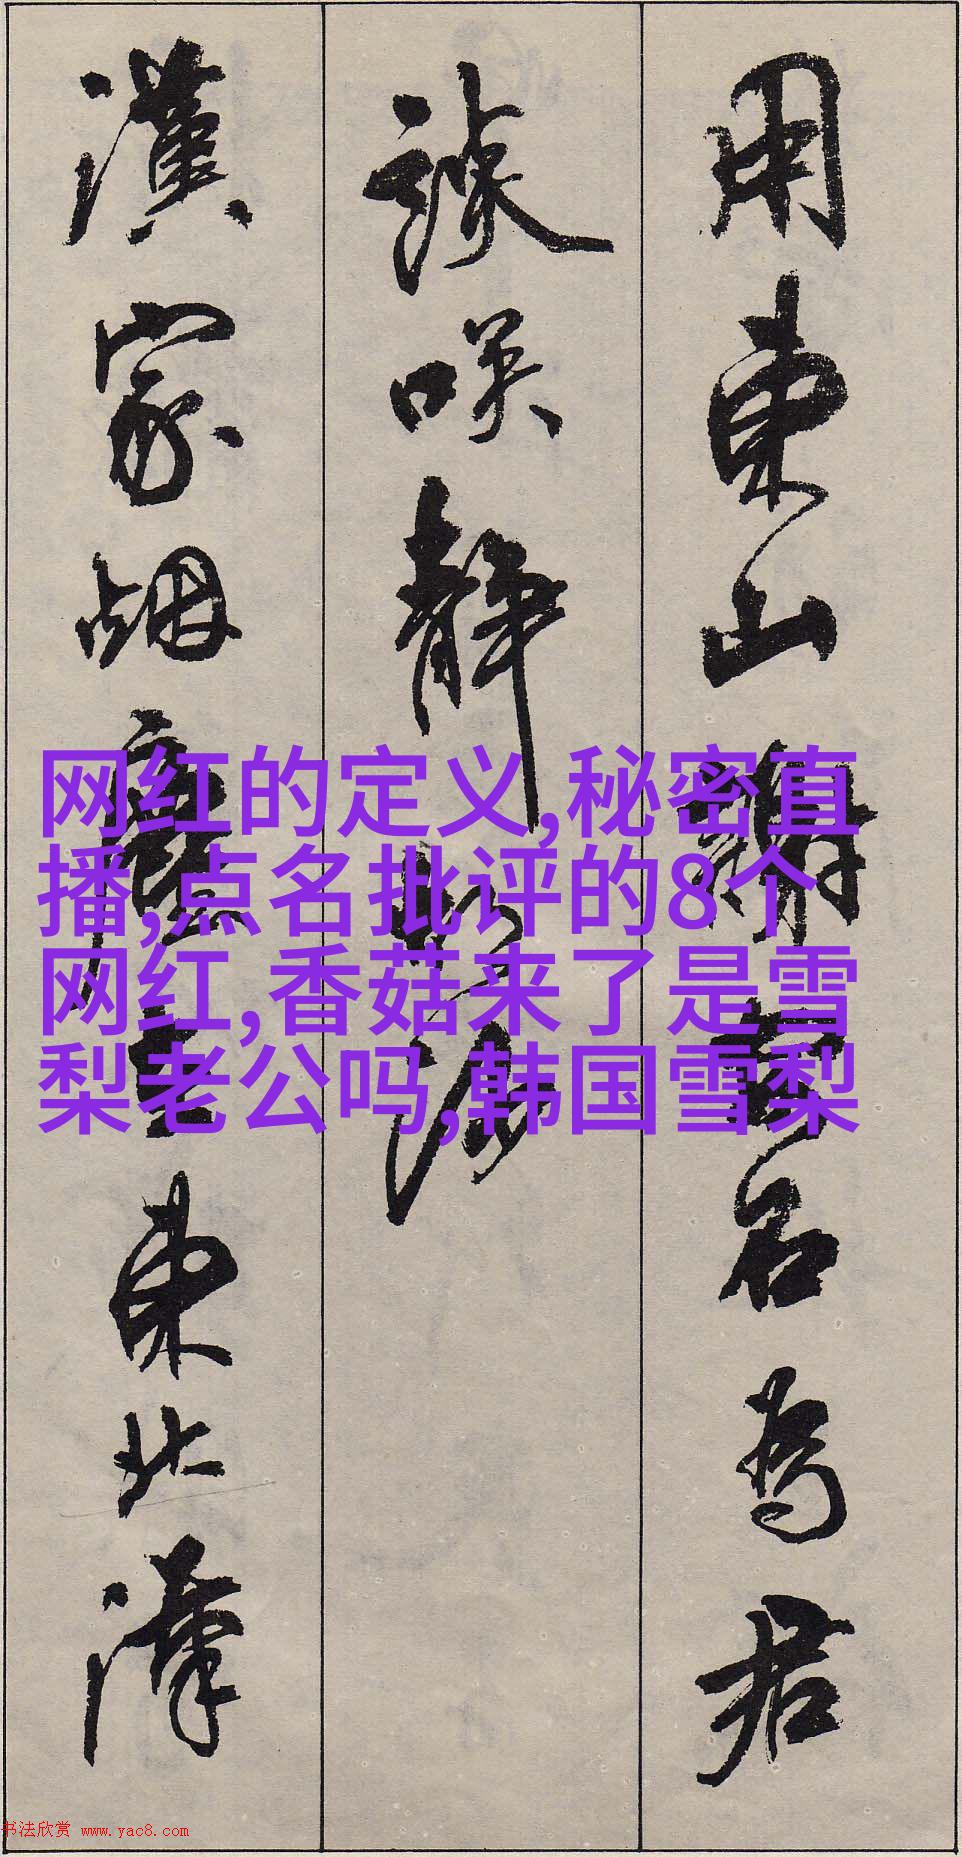 用東山謝安石為君
談笑靜胡沙
漢家烟塵在東北漢
网红的定义,秘密直
播,点名批评的8个
网红,香菇来了是雪
梨老公吗,韩国雪梨
书法欣赏 www.yac8.com